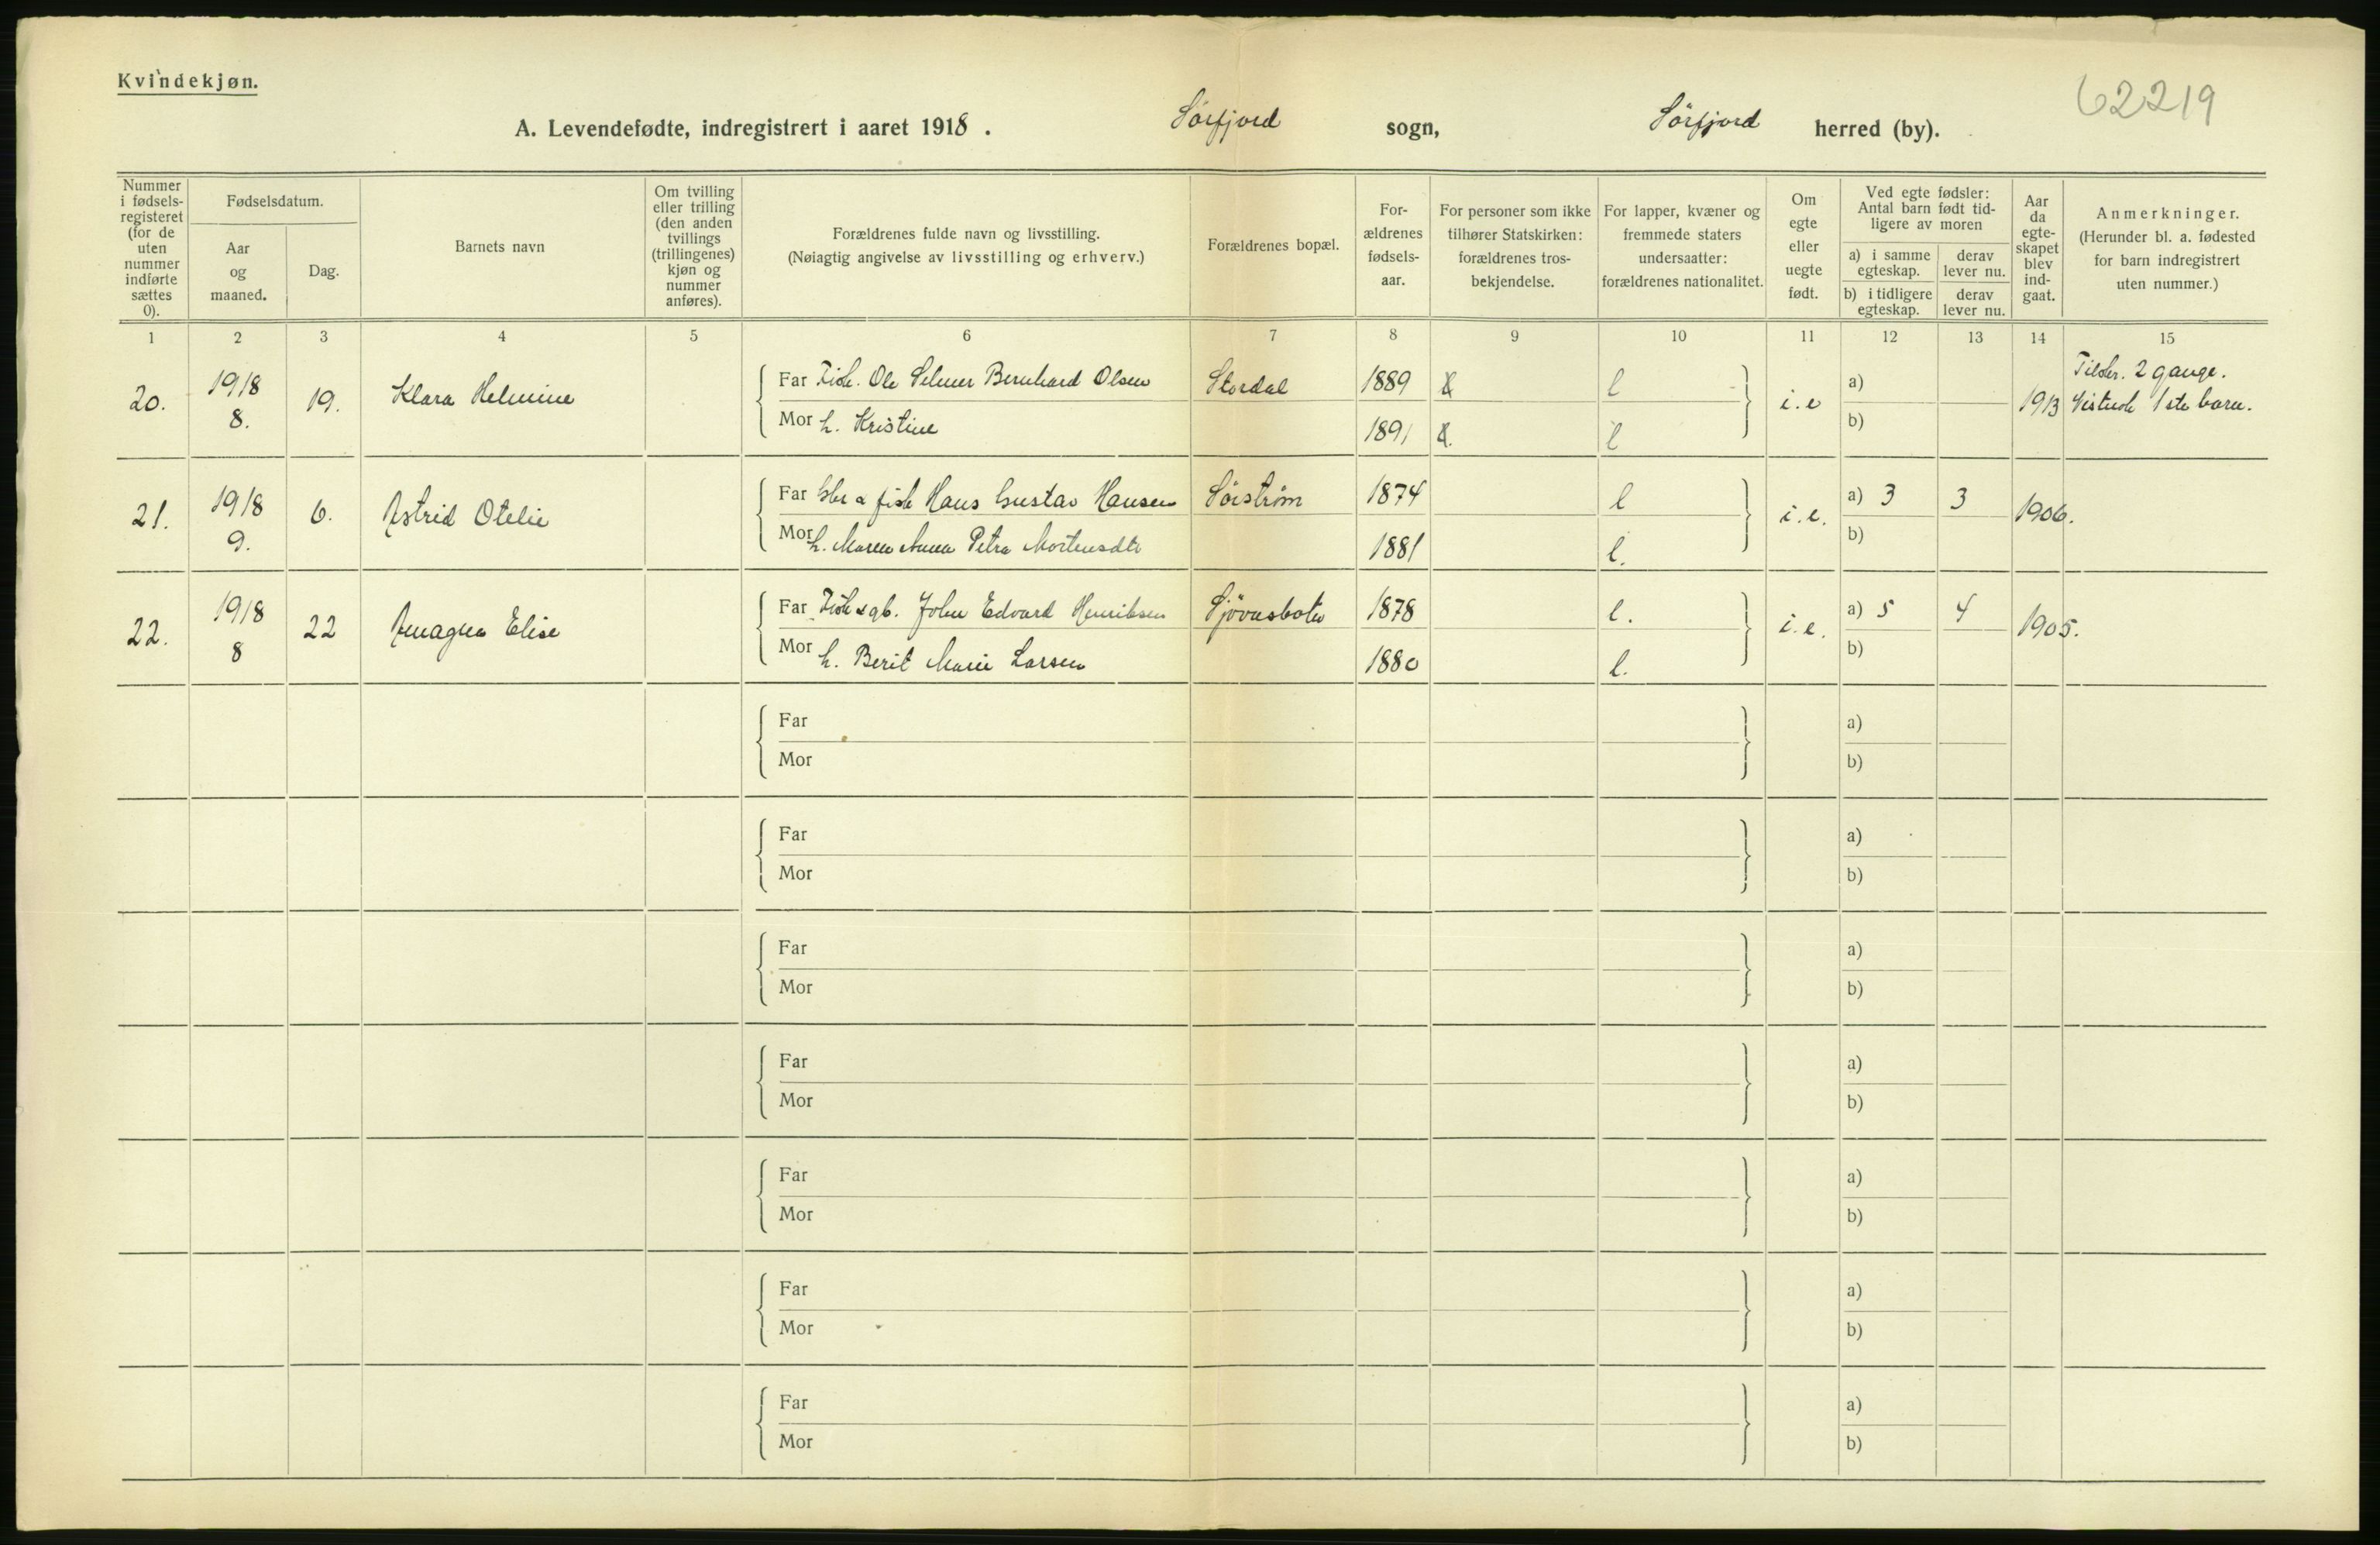 Kvindekjøn.
62219
A. Levendefødte, indregistrert i aaret 1918. Sörfjord sogn, Sörfjord herred (by).
Nummer i fødsels-registeret (for de uten nummer indførte sættes 0).
Fødselsdatum.
Aar og maaned.
Dag.
Barnets navn
Om tvilling eller trilling (den anden tvillings (trillingenes) kjøn og nummer anføres).
Forældrenes fulde navn og livsstilling.
(Nøiagtig angivelse av livsstilling og erhverv.)
Forældrenes bopæl.
For-ældrenes fødsels-aar.
For personer som ikke tilhører Statskirken: forældrenes tros-bekjendelse.
For lapper, kvæner og fremmede staters undersaatter: forældrenes nationalitet.
Om egte eller uegte født.
Ved egte fødsler: Antal barn født tid-ligere av moren
a) i samme egteskap.
derav lever nu.
b) i tidligere egteskap.
derav lever nu.
Aar da egte-skapet blev ind-gaat.
Anmerkninger.
(Herunder bl. a. fødested for barn indregistrert uten nummer.)
1 2 3 4 5 6 7 8 9 10 11 12 13 14 15
20. 1918 8. 19. Klara Helmine
Far Fisk. Ole Selmer Bernhard Olsen Stordal 1889 l
Mor h. Kristine 1891 l
i.e a) b) 1913
2 gange.
1ste barn.
21. 1918 9. 6. Astrid Otelie
Far gbr & fisk Hans Gustav Hansen Sörstrøm 1874 l
Mor h. Maren Anna Petra Mortensdtr 1881 l.
i.e. a) 3 3 b) 1906.
22. 1918 8 22 Amagna Elise
Far Fisk & gb. John Edvard Henriksen Sjövasbotn 1878 l.
Mor h. Berit Marie Larsen 1880 l.
i.e. a) 5 4 b) 1905.
Far a)
Mor b)
Far a)
Mor b)
Far a)
Mor b)
Far a)
Mor b)
Far a)
Mor b)
Far a)
Mor b)
Far a)
Mor b)